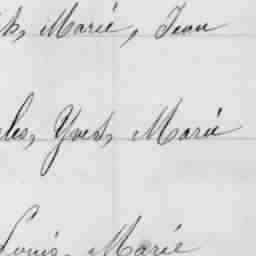 Marie, Jean
Yves, Marie
Louis, Marie